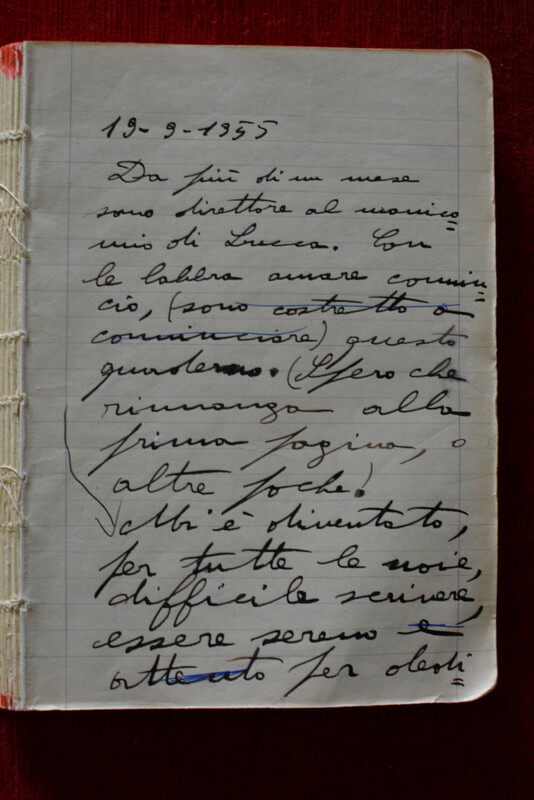 19-9-1955
Da più di un mese
sono direttore al manico=
mio di Lucca. Con
le labbra amare comin=
cio, (sono costretto a
cominciare) questo
quaderno. (Spero che
rimanga alla
prima pagina, o
altre poche!
Mi è diventato,
per tutte le noie,
difficile scrivere,
essere sereno e
attento per dedi=